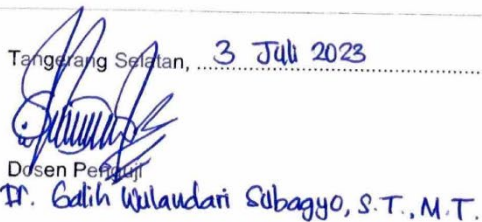 Tangerang Selatan, 3 Juli 2023
Dosen Penguji
Ir. Galih Wulandari Subagyo, S.T., M.T.